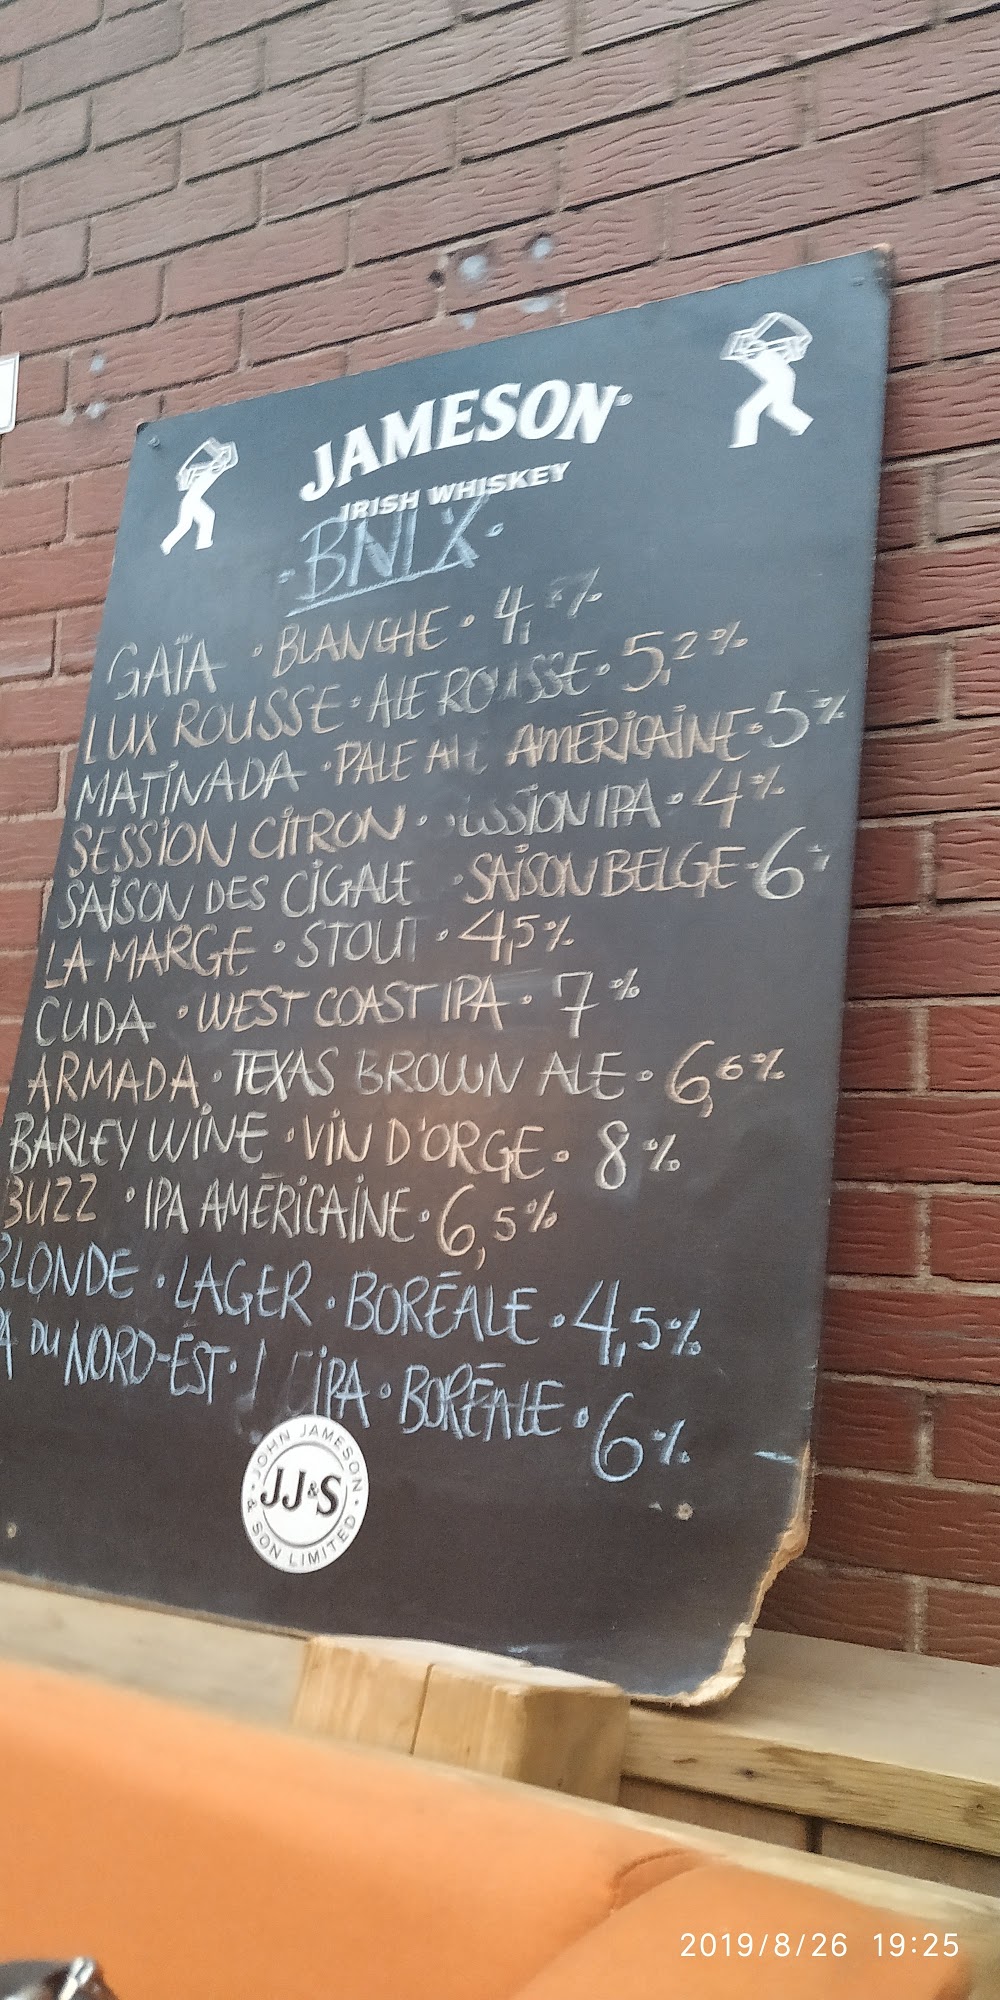 JAMESON
IRISH WHISKEY
· BNLX ·
GAÏA · BLANCHE · 4,
LUX ROUSSE · ALE ROUSSE · 5,2%
MATINADA · PALE AMÉRICAINE · 5%
SESSION CITRON · IPA · 4%
SAISON DES CIGALE · SAISON BELGE · 6
LA MARGE · STOUT · 4,5%
CUDA · WEST COAST IPA · 7%
ARMADA · TEXAS BROWN ALE · 6,6%
BARLEY WINE · VIN D'ORGE · 8%
BUZZ · IPA AMÉRICAINE · 6,5%
BLONDE · LAGER · BORÉALE · 4,5%
DU NORD-EST · IPA · BORÉALE · 6%
· JOHN JAMESON · & SON LIMITED
JJ&S
2019/8/26 19:25